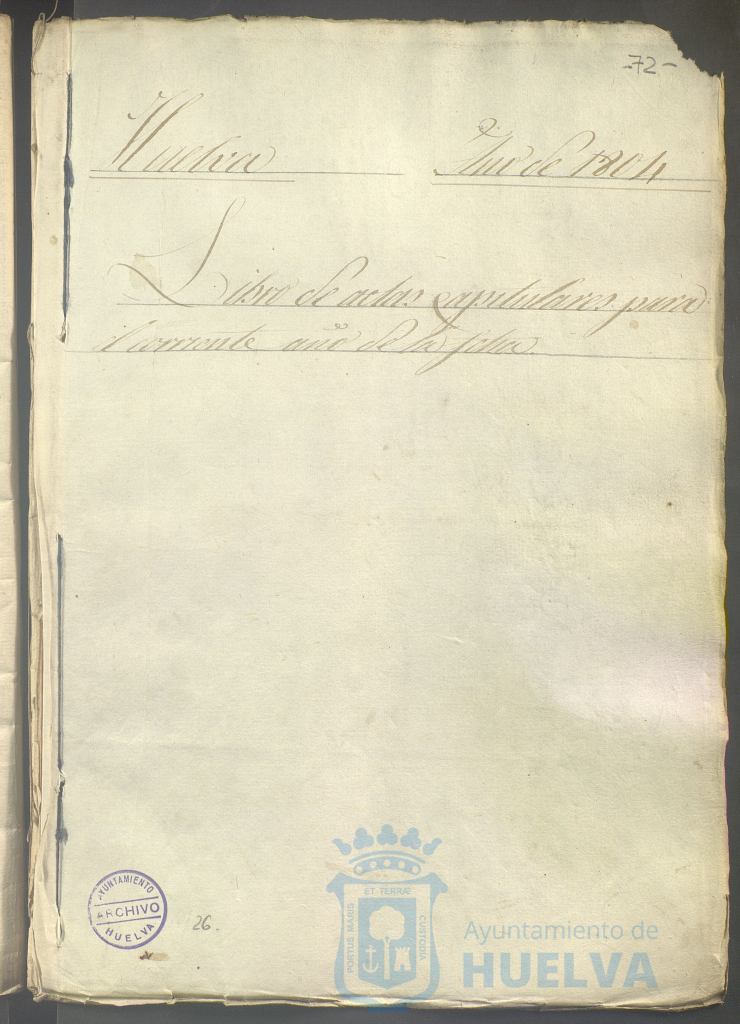 -72-
Huelva
Año de 1804
Libro de actas capitulares para
el corriente año de la fecha.
AYUNTAMIENTO
ARCHIVO
HUELVA
26.
ET TERRÆ
PORTUS MARIS
CUSTODIA
Ayuntamiento de
HUELVA